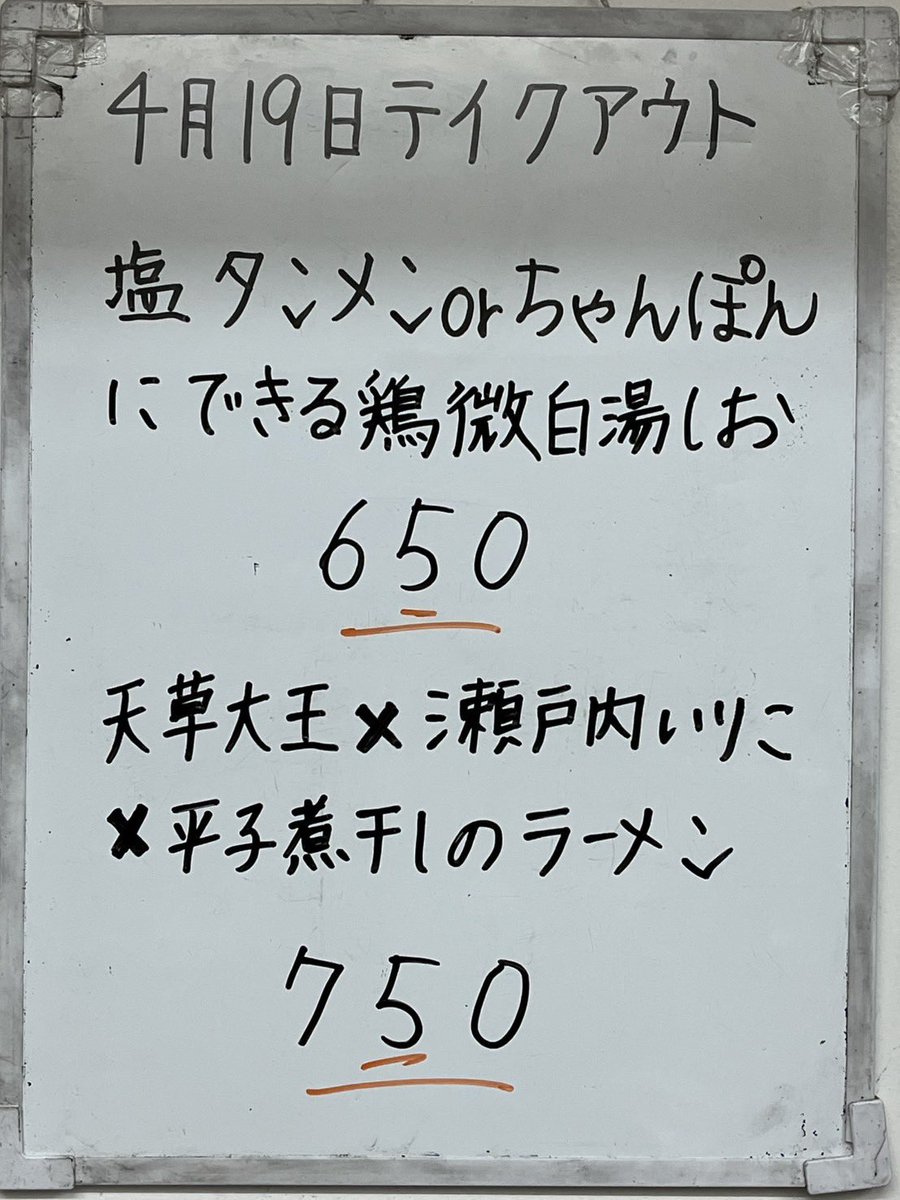 4月19日テイクアウト
塩タンメンorちゃんぽん
にできる鶏微白湯しお
650
天草大王×瀬戸内いりこ
×平子煮干しのラーメン
750